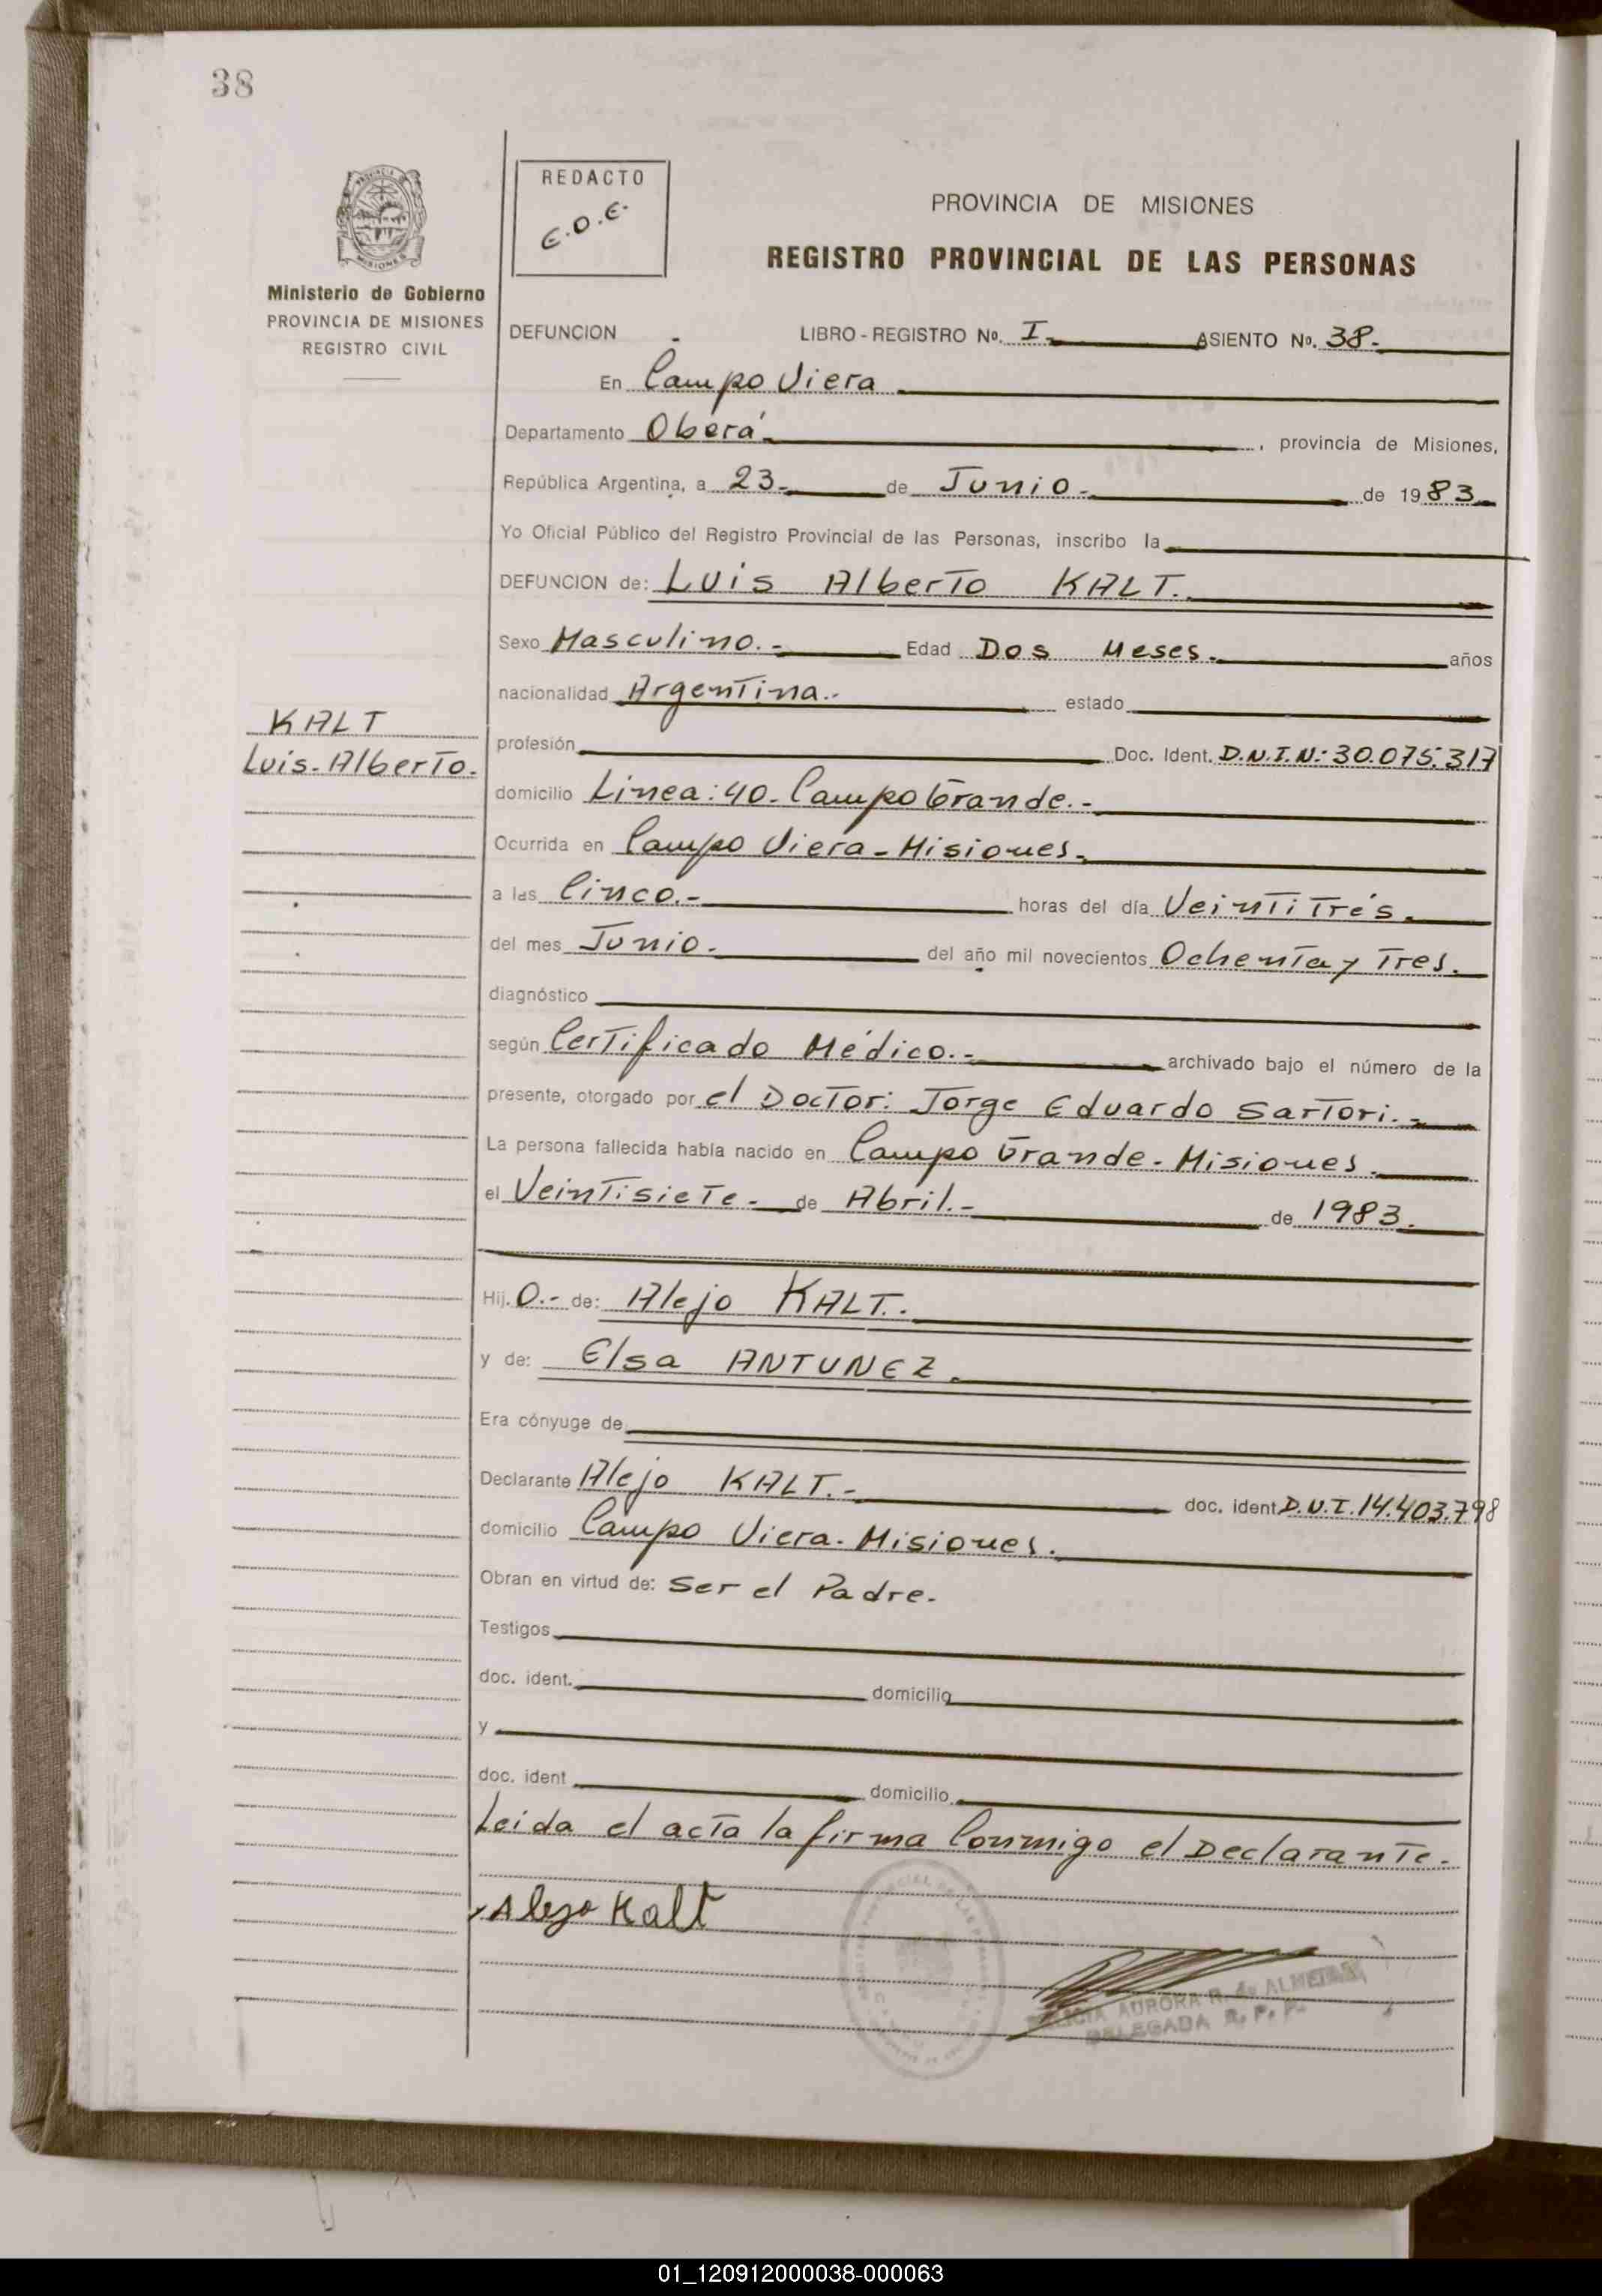 38
REDACTO
E.O.E.
PROVINCIA DE MISIONES
REGISTRO PROVINCIAL DE LAS PERSONAS
MISIONES
Ministerio de Gobierno
PROVINCIA DE MISIONES
REGISTRO CIVIL
DEFUNCION LIBRO - REGISTRO Nº. I- ASIENTO Nº. 38-
En Campo Viera
Departamento Oberá , provincia de Misiones,
República Argentina, a 23- de Junio- de 1983
Yo Oficial Público del Registro Provincial de las Personas, inscribo la
DEFUNCION de: Luis Alberto KALT.
Sexo Masculino.- Edad Dos Meses. años
nacionalidad Argentina.- estado
KALT
Luis-Alberto.
profesión Doc. Ident. D.N.I.N: 30.075.317
domicilio Linea: 40- Campo Grande.-
Ocurrida en Campo Viera-Misiones-
a las Cinco.- horas del día Veintitrés.
del mes Junio- del año mil novecientos Ochenta y Tres.
diagnóstico
según Certificado Médico.- archivado bajo el número de la
presente, otorgado por el Doctor: Jorge Eduardo Sartori.-
La persona fallecida había nacido en Campo Grande-Misiones.
el Veintisiete- de Abril.- de 1983.
Hij. o.- de: Alejo KALT.
y de: Elsa ANTUNEZ.
Era cónyuge de
Declarante Alejo KALT.- doc. ident. D.N.I. 14.403.798
domicilio Campo Viera-Misiones.
Obran en virtud de: Ser el Padre.
Testigos
doc. ident. domicilio
y
doc. ident domicilio
Leida el acta la firma Conmigo el Declarante.
Alejo Kalt
AURORA R. de ALMEIDA
DELEGADA R. P. P.
01_120912000038-000063